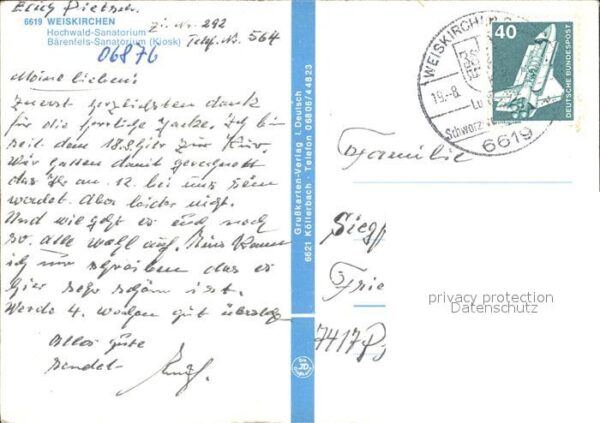 Erich Pietsch.
Zi. Nr. 292
6619 WEISKIRCHEN
Hochwald-Sanatorium
Telf. Nr. 564
Bärenfels-Sanatorium (Kiosk)
06876
Meine Lieben!
Zuerst herzlichsten dank
für die herrliche Jacke. Ich bin
seit dem 18.8. hier zur Kur.
Wir hatten damit gerechnet
das Ihr am 12. bei uns sein
werdet. Aber leider nicht.
Und wie geht es euch noch
so. alle wohl auf. Kann
ich nur schreiben das es
hier sehr schön ist.
Werde 4. wochen gut
Alles gute
sendet
Grußkarten-Verlag I. Deutsch
6621 Köllerbach · Telefon 06806/44823
WEISKIRCHEN
19.-8.
6619
40
DEUTSCHE BUNDESPOST
Familie
Siegf
Frie
7417 P
privacy protection
Datenschutz